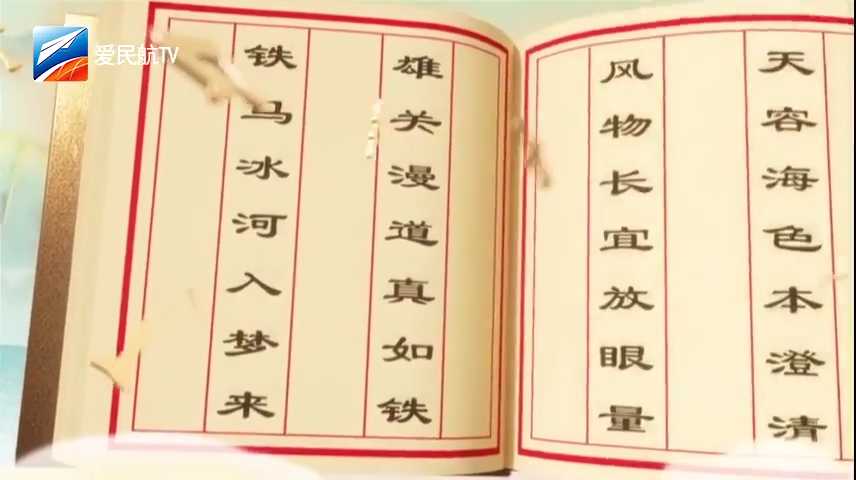 爱民航TV
天容海色本澄清
风物长宜放眼量
雄关漫道真如铁
铁马冰河入梦来